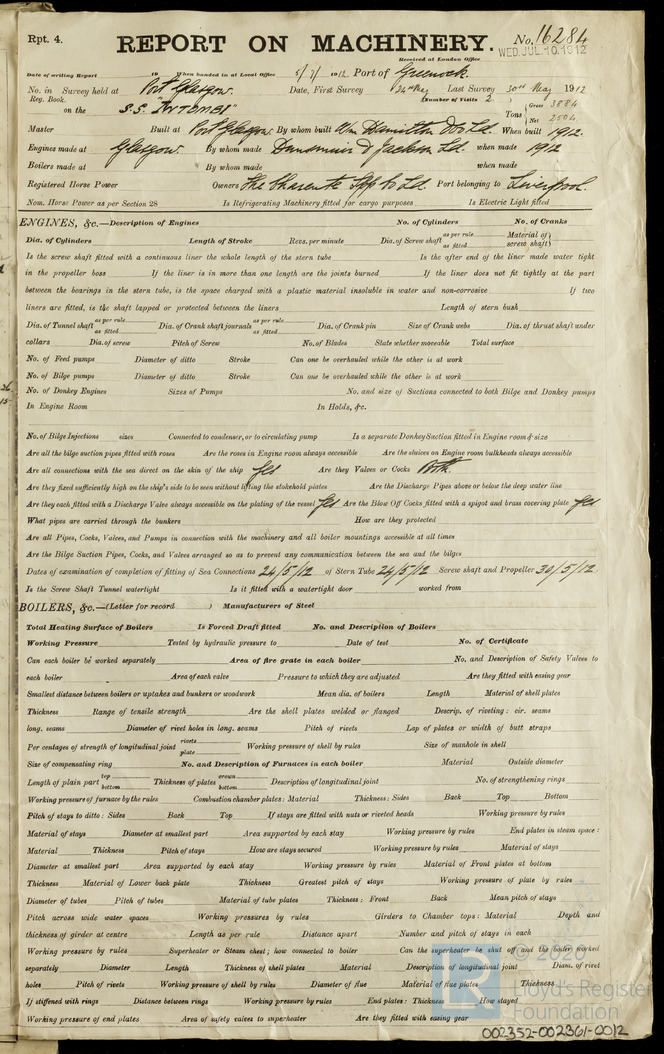 Rpt. 4.
REPORT ON MACHINERY.
No. 16284
WED. JUL. 10. 1912
Received at London Office
Date of writing Report 19 When handed in at Local Office 5/7/1912 Port of Greenock
No. in Survey held at Port Glasgow. Date, First Survey 24th May Last Survey 30th May 1912
Reg. Book. (Number of Visits 2 )
on the S.S. "
Tons { Gross 3884 Net 2504
Master Built at Port Glasgow. By whom built Wm Hamilton & Co Ld. When built 1912.
Engines made at Glasgow. By whom made Dunsmuir & Jackson Ld. when made 1912
Boilers made at By whom made when made
Registered Horse Power Owners The Charente SSp Co Ld. Port belonging to Liverpool.
Nom. Horse Power as per Section 28 Is Refrigerating Machinery fitted for cargo purposes Is Electric Light fitted
ENGINES, &c.—Description of Engines No. of Cylinders No. of Cranks
Dia. of Cylinders Length of Stroke Revs. per minute Dia. of Screw shaft as per rule as fitted Material of screw shaft)
Is the screw shaft fitted with a continuous liner the whole length of the stern tube Is the after end of the liner made water tight
in the propeller boss If the liner is in more than one length are the joints burned If the liner does not fit tightly at the part
between the bearings in the stern tube, is the space charged with a plastic material insoluble in water and non-corrosive If two
liners are fitted, is the shaft lapped or protected between the liners Length of stern bush
Dia. of Tunnel shaft as per rule as fitted Dia. of Crank shaft journals as per rule as fitted Dia. of Crank pin Size of Crank webs Dia. of thrust shaft under
collars Dia. of screw Pitch of Screw No. of Blades State whether moveable Total surface
No. of Feed pumps Diameter of ditto Stroke Can one be overhauled while the other is at work
No. of Bilge pumps Diameter of ditto Stroke Can one be overhauled while the other is at work
No. of Donkey Engines Sizes of Pumps No. and size of Suctions connected to both Bilge and Donkey pumps
In Engine Room In Holds, &c.
No. of Bilge Injections sizes Connected to condenser, or to circulating pump Is a separate Donkey Suction fitted in Engine room & size
Are all the bilge suction pipes fitted with roses Are the roses in Engine room always accessible Are the sluices on Engine room bulkheads always accessible
Are all connections with the sea direct on the skin of the ship Yes Are they Valves or Cocks Both.
Are they fixed sufficiently high on the ship's side to be seen without lifting the stokehold plates Are the Discharge Pipes above or below the deep water line
Are they each fitted with a Discharge Valve always accessible on the plating of the vessel Yes Are the Blow Off Cocks fitted with a spigot and brass covering plate Yes
What pipes are carried through the bunkers How are they protected
Are all Pipes, Cocks, Valves, and Pumps in connection with the machinery and all boiler mountings accessible at all times
Are the Bilge Suction Pipes, Cocks, and Valves arranged so as to prevent any communication between the sea and the bilges
Dates of examination of completion of fitting of Sea Connections 24/5/12 of Stern Tube 24/5/12 Screw shaft and Propeller 30/5/12
Is the Screw Shaft Tunnel watertight Is it fitted with a watertight door worked from
BOILERS, &c.—(Letter for record ) Manufacturers of Steel
Total Heating Surface of Boilers Is Forced Draft fitted No. and Description of Boilers
Working Pressure Tested by hydraulic pressure to Date of test No. of Certificate
Can each boiler be worked separately Area of fire grate in each boiler No. and Description of Safety Valves to
each boiler Area of each valve Pressure to which they are adjusted Are they fitted with easing gear
Smallest distance between boilers or uptakes and bunkers or woodwork Mean dia. of boilers Length Material of shell plates
Thickness Range of tensile strength Are the shell plates welded or flanged Descrip. of riveting: cir. seams
long. seams Diameter of rivet holes in long. seams Pitch of rivets Lap of plates or width of butt straps
Per centages of strength of longitudinal joint rivets plate Working pressure of shell by rules Size of manhole in shell
Size of compensating ring No. and Description of Furnaces in each boiler Material Outside diameter
Length of plain part top bottom Thickness of plates crown bottom Description of longitudinal joint No. of strengthening rings
Working pressure of furnace by the rules Combustion chamber plates: Material Thickness: Sides Back Top Bottom
Pitch of stays to ditto: Sides Back Top If stays are fitted with nuts or riveted heads Working pressure by rules
Material of stays Diameter at smallest part Area supported by each stay Working pressure by rules End plates in steam space:
Material Thickness Pitch of stays How are stays secured Working pressure by rules Material of stays
Diameter at smallest part Area supported by each stay Working pressure by rules Material of Front plates at bottom
Thickness Material of Lower back plate Thickness Greatest pitch of stays Working pressure of plate by rules
Diameter of tubes Pitch of tubes Material of tube plates Thickness: Front Back Mean pitch of stays
Pitch across wide water spaces Working pressures by rules Girders to Chamber tops: Material Depth and
thickness of girder at centre Length as per rule Distance apart Number and pitch of stays in each
Working pressure by rules Superheater or Steam chest; how connected to boiler Can the superheater be shut off and the boiler worked
separately Diameter Length Thickness of shell plates Material Description of longitudinal joint Diam. of rivet
holes Pitch of rivets Working pressure of shell by rules Diameter of flue Material of flue plates Thickness
If stiffened with rings Distance between rings Working pressure by rules End plates: Thickness How stayed
Working pressure of end plates Area of safety valves to superheater Are they fitted with easing gear
© 2020
Lloyd's Register
Foundation
002352-002361-0012